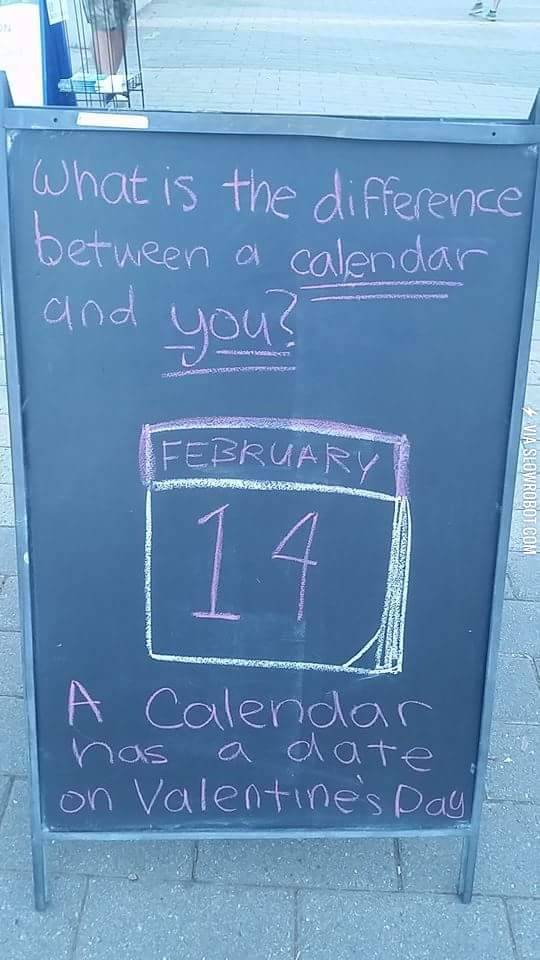 What is the difference
between a calendar
and you?
FEBRUARY
14
A Calendar
has a date
on Valentine's Day
VIA SLOWROBOT.COM